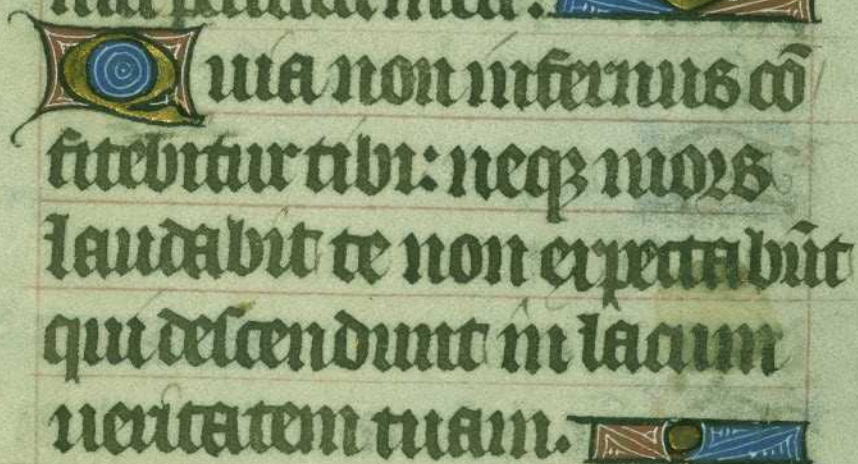 Quia non infernus cō
fitebitur tibi: neqꝫ mors
laudabit te non expectabūt
qui descendunt in lacum
ueritatem tuam.